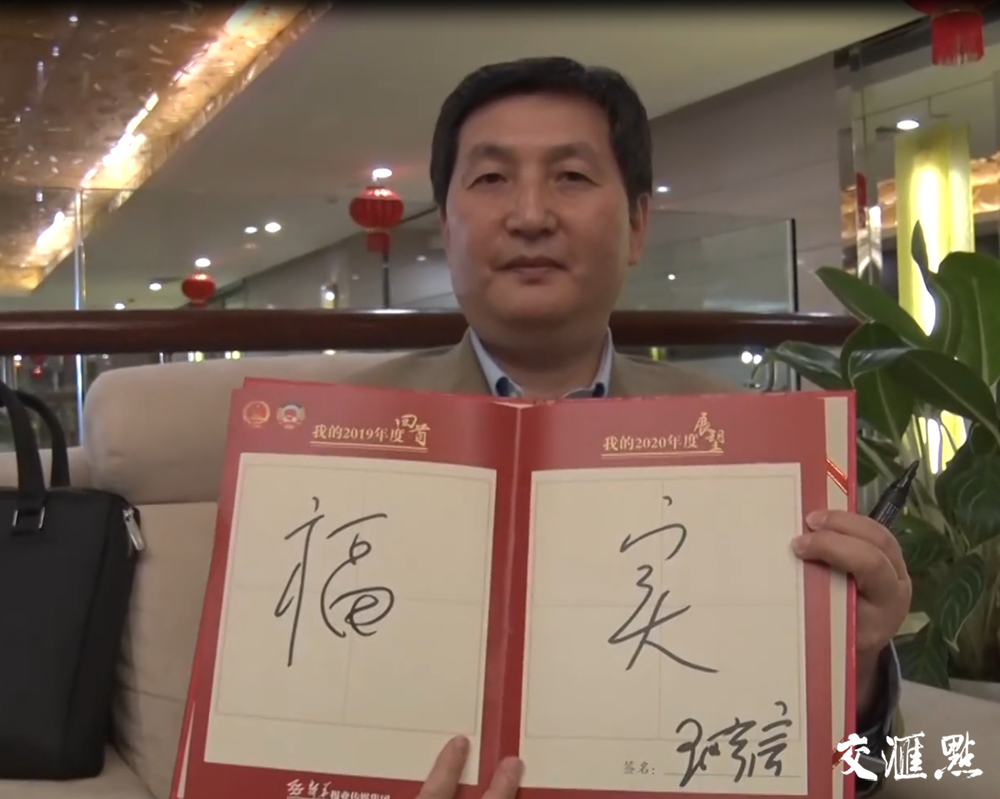 我的2019年度回首
我的2020年度展望
福
实
签名:
报业传媒集团
交滙點